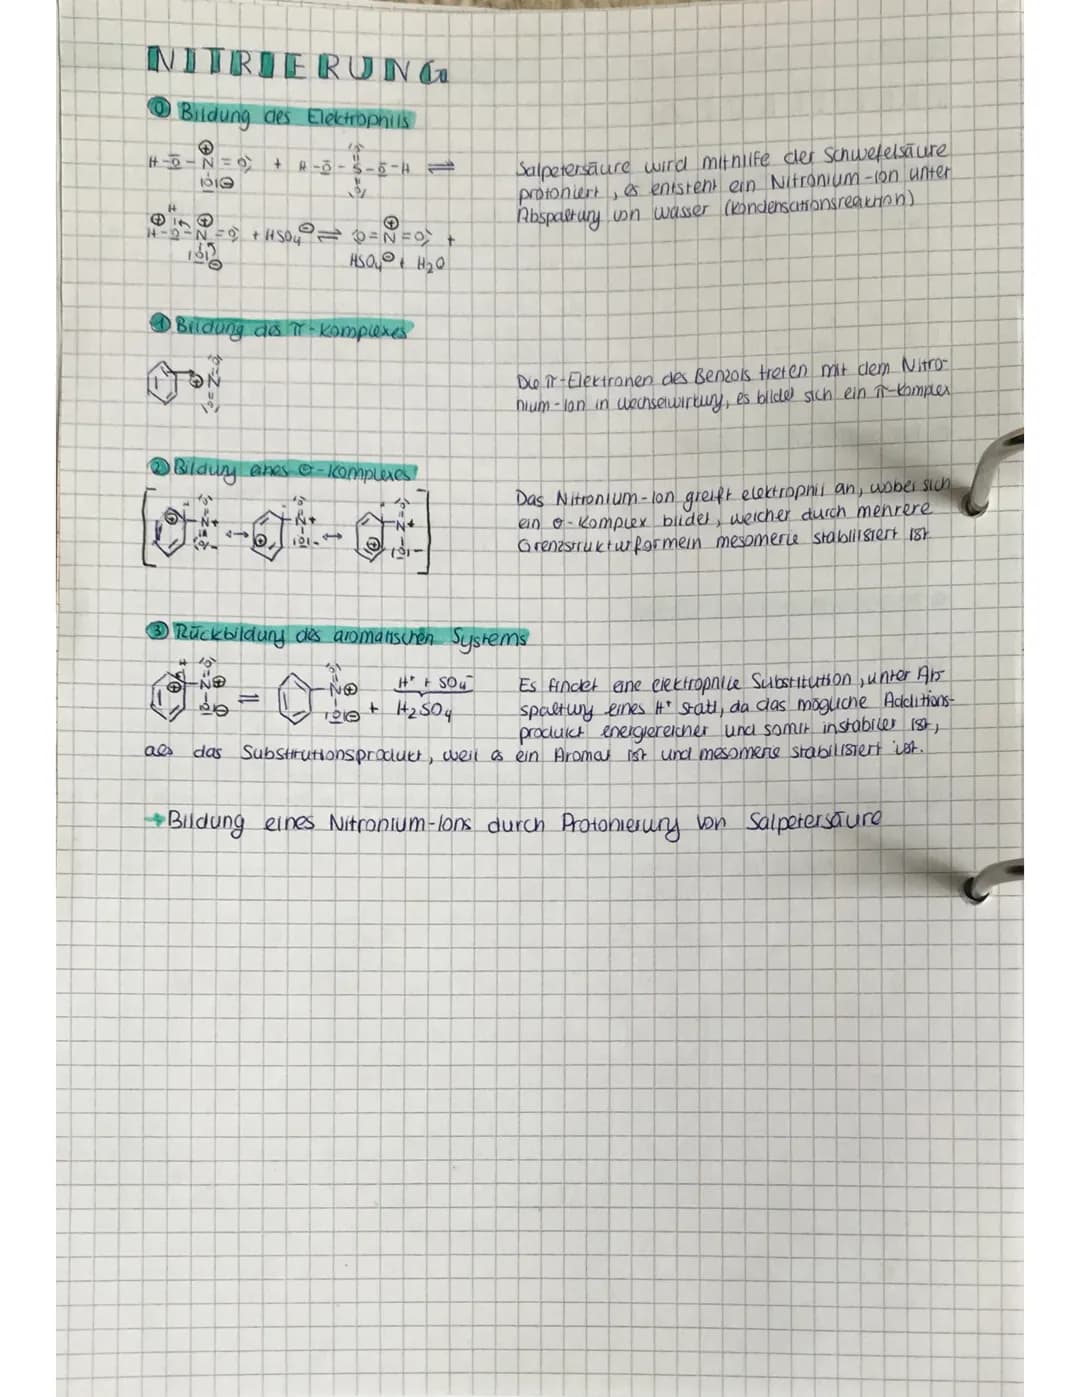 NITRIERUNG
⓪ Bildung des Elektrophils
H-O-N=O + H-O-S-O-H ⇌
Salpetersäure wird mithilfe der Schwefelsäure
protoniert, es entsteht ein Nitronium-ion unter
Abspaltung von Wasser (Kondensationsreaktion)
H-O-N=O + HSO4⊖ ⇌ O=N=O +
HSO4⊖ + H2O
① Bildung des π-Komplexes
Die π-Elektronen des Benzols treten mit dem Nitro-
nium-Ion in Wechselwirkung, es bildet sich ein π-Komplex
② Bildung eines σ-Komplexes
Das Nitronium-Ion greift elektrophil an, wobei sich
ein σ-Komplex bildet, welcher durch mehrere
Grenzstrukturformeln mesomerie stabilisiert ist
③ Rückbildung des aromatischen Systems
H+ + SO4-
+ H2SO4
Es findet eine elektrophile Substitution, unter Ab-
spaltung eines H+ statt, da das mögliche Additions-
produkt energiereicher und somit instabiler ist,
als das Substitutionsprodukt, weil es ein Aromat ist und mesomerie stabilisiert ist.
→ Bildung eines Nitronium-Ions durch Protonierung von Salpetersäure